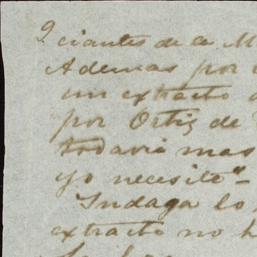 ciantes de a M
Ademas por
un extracto
por Ortiz de
todavia mas
yo necesito"-
Indaga lo
extracto no h